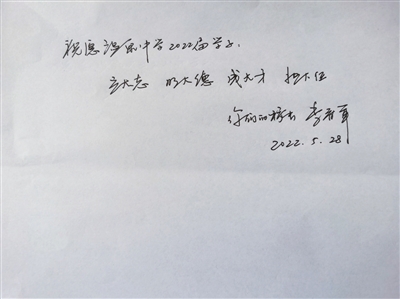 祝愿涩原中学2022届学子:
立大志 明大德 成大才 担大任
你们的校长 李晋军
2022.5.28